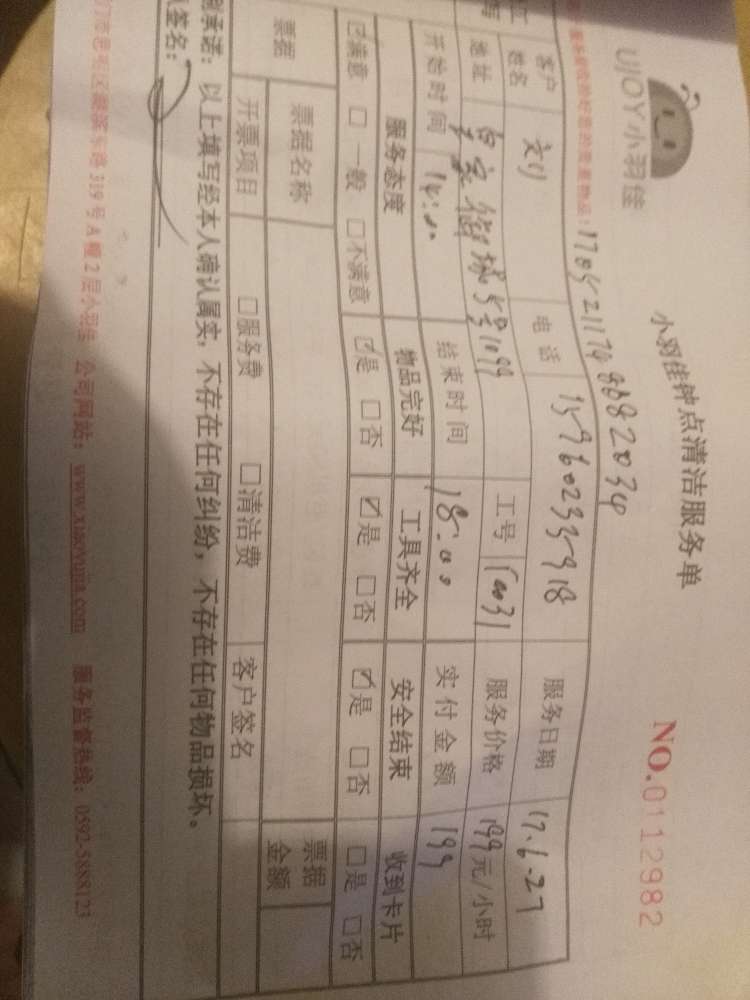 UJOY小羽佳
小羽佳钟点清洁服务单
NO.0112982
客户姓名 刘 电话 15960233918 服务日期 17.6.27
地址 工号 服务价格 199元/小时
开始时间 14:00 结束时间 18:00 实付金额 199
服务态度 物品完好 工具齐全 安全结束 收到卡片
☑满意 □一般 □不满意 ☑是 □否 ☑是 □否 ☑是 □否 □是 □否
票据 票据名称 票据金额
开票项目 □服务费 □清洁费 客户签名
承诺：以上填写经本人确认属实，不存在任何纠纷，不存在任何物品损坏。
签名：
319号A幢2层小羽佳 公司网站：www.xiaoyujia.com 服务监督热线：0592-5888123